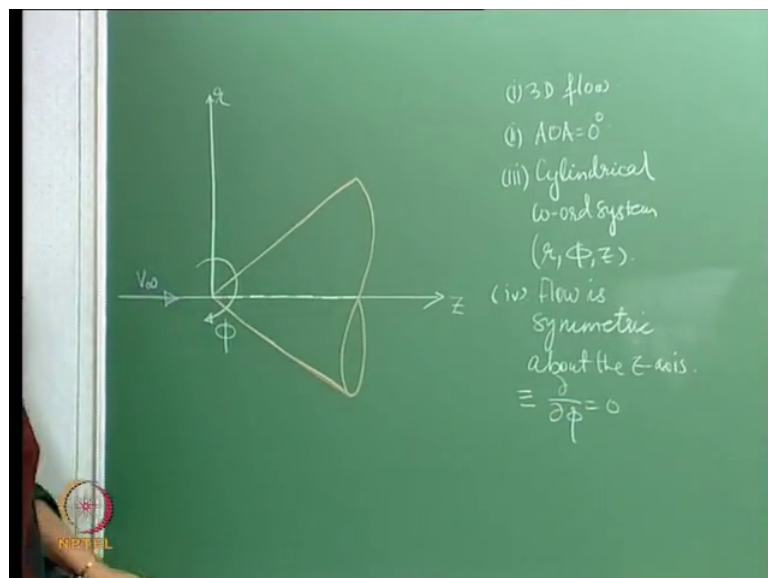 r
V∞
ϕ
z
(i) 3D flow.
(ii) AOA=0°
(iii) Cylindrical
co-ord system
(r, ϕ, z).
(iv) Flow is
symmetric
about the z-axis.
≡ ∂/∂ϕ = 0
NPTEL